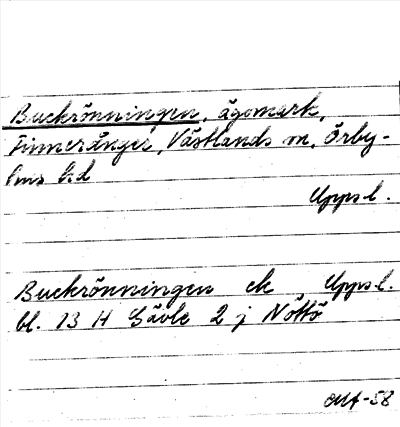 Buckrönningen, ägomark,
Finneränger, Västlands sn, Örby-
hus hd
Upps.l.
Buckrönningen ek Upps.l.
bl. 13 H Gävle 2 j Nöttö
-58